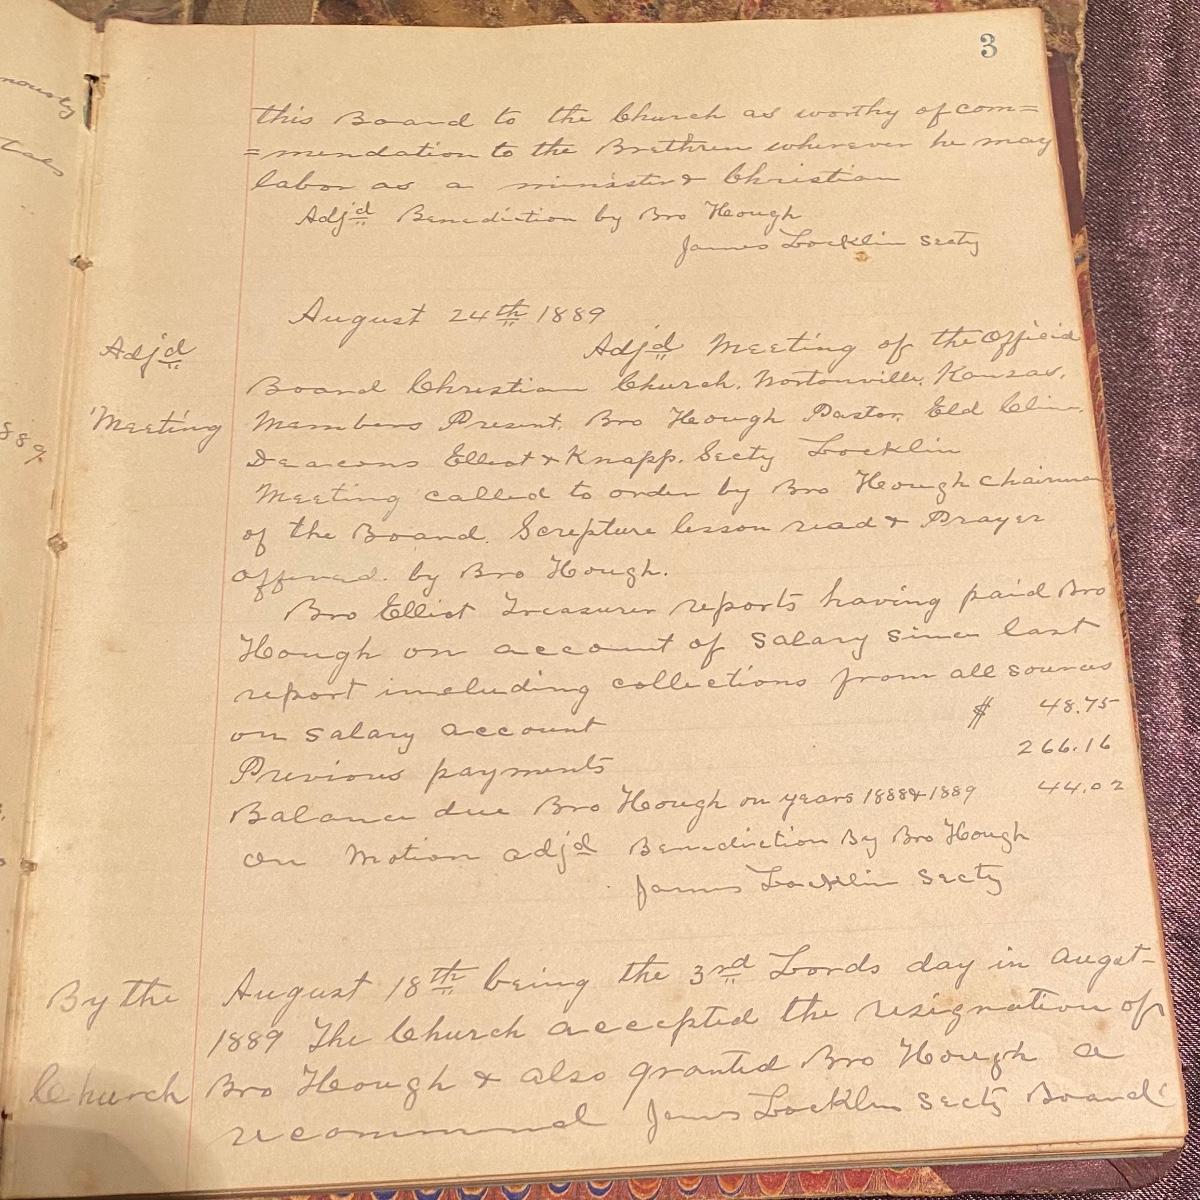 3
nously
this Board to the Church as worthy of com=
=mendation to the Brethren wherever he may
labor as a minister & Christian
Adjd Benediction by Bro Hough
James Locklin Secty
August 24th 1889
Adjd Adjd Meeting of the Official
Board Christian Church. Nortonville, Kansas.
Meeting Members Present. Bro Hough Pastor, Eld Cline,
Deacons Elliot & Knapp. Secty Locklin
Meeting called to order by Bro Hough chairman
of the Board. Scripture lesson read & Prayer
offered. by Bro Hough.
Bro Elliot Treasurer reports having paid Bro
Hough on account of salary since last
report including collections from all sources
on salary account $ 48.75
Previous payments 266.16
Balance due Bro Hough on years 1888 & 1889 44.02
On Motion adjd Benediction By Bro Hough
James Locklin Secty
By the August 18th being the 3rd Lords day in Augst
1889 The Church accepted the resignation of
Church Bro Hough & also granted Bro Hough a
recommend James Locklin Secty Board